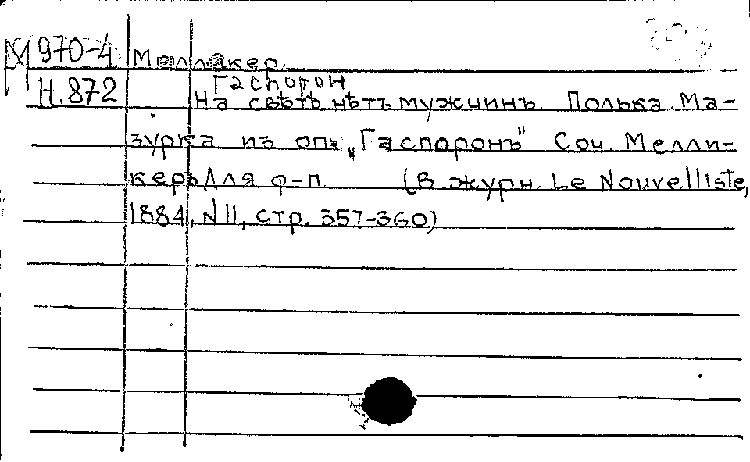 М 970-4 Меллекер.
Гаспорон
Н.872 На свѣтѣ нѣтъ мужчинъ. Полька Ма-
зурка из оп. „Гаспоронъ" Соч. Мелли-
керъ Для ф-п. (В журн. Le Nouvelliste,
1884, N11, стр. 357-360)